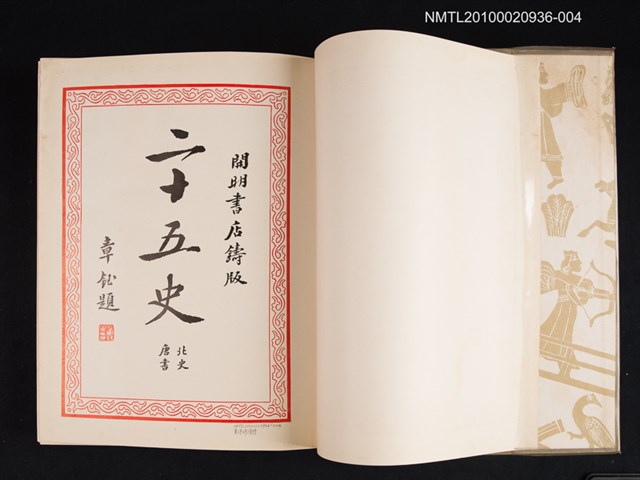 NMTL20100020936-004
開明書店鑄版
二十五史
北史
唐書
章鈺題